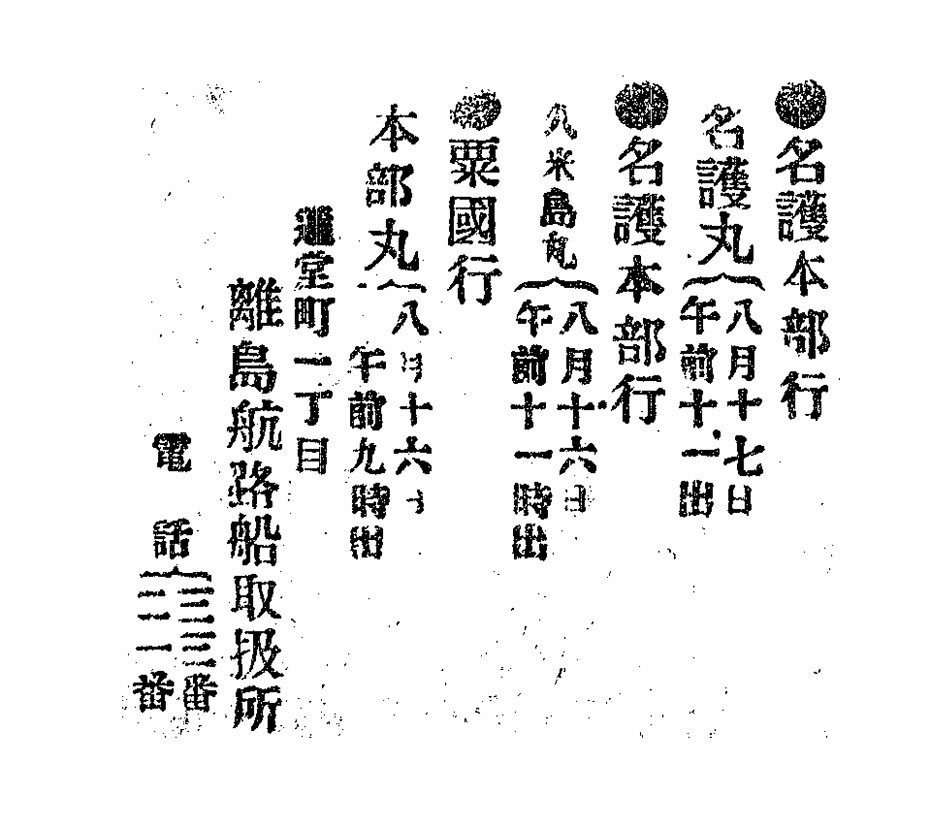 ●名護本部行
名護丸
八月十七日
午前十一出
●名護本部行
久米島丸
八月十六日
午前十一時出
●粟國行
本部丸
八月十六日
午前九時出
通堂町一丁目
離島航路船取扱所
電話
三三番
二一番